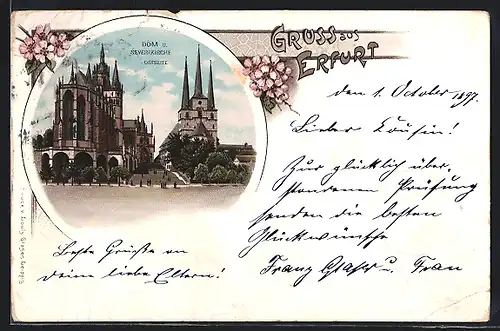 GRUSS aus
ERFURT
DOM u.
SEVERIKIRCHE
OSTSEITE
den 1. October 1897.
Lieber Cousin!
Zur glücklich über-
standenen Prüfung
senden die besten
Glückwünsche
Franz u. Frau
Beste Grüße an
Deine lieben Eltern!